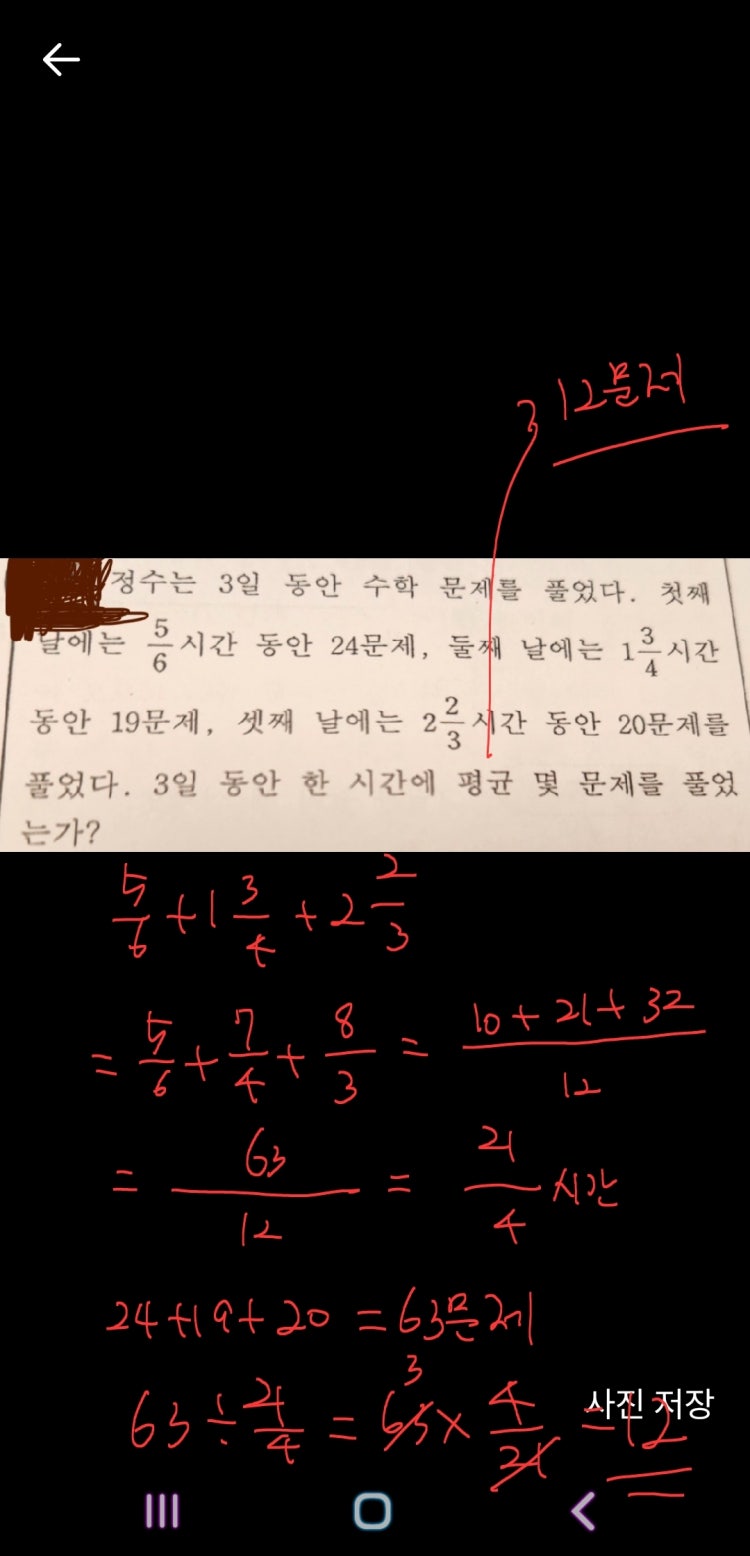 12문제
정수는 3일 동안 수학 문제를 풀었다. 첫째
날에는 5/6 시간 동안 24문제, 둘째 날에는 1 3/4 시간
동안 19문제, 셋째 날에는 2 2/3 시간 동안 20문제를
풀었다. 3일 동안 한 시간에 평균 몇 문제를 풀었
는가?
5/6 + 1 3/4 + 2 2/3
= 5/6 + 7/4 + 8/3 = (10 + 21 + 32)/12
= 63/12 = 21/4 시간
24+19+20 = 63문제
63 ÷ 21/4 = 63 × 4/21 = 12
3
사진 저장